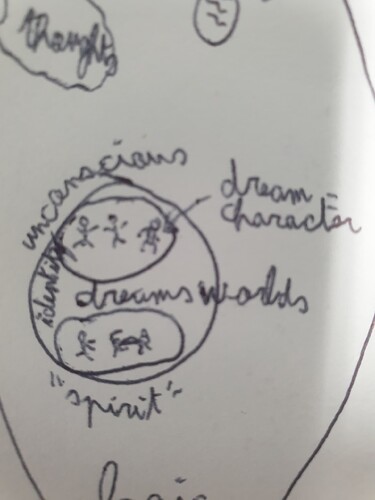 thoughts
unconscious
dream
character
identity
dreams worlds
"spirit"